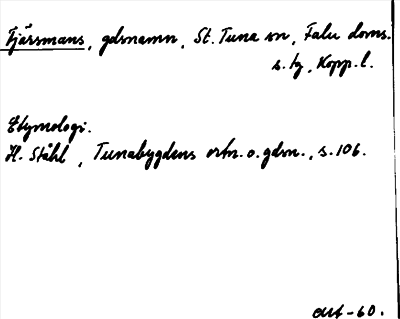 Tjärsmans, gdsnamn, St. Tuna sn, Falu doms.
s. tg, Kopp. l.
Etymologi.
H. Ståhl, Tunabygdens ortn. o. gdsn., s. 106.
-60.